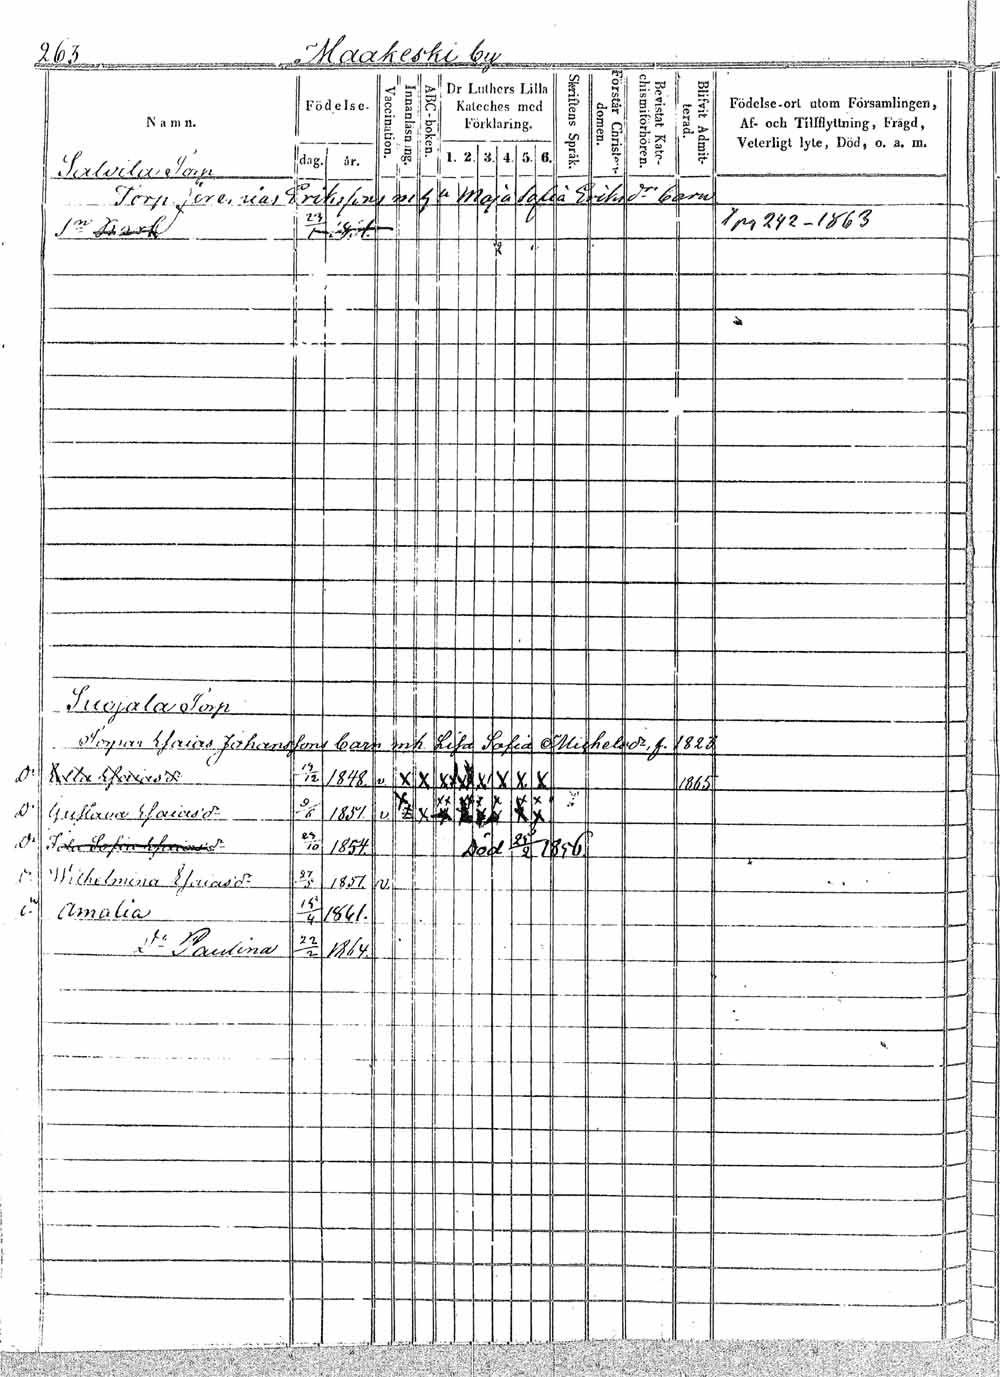 263 Maakeski by
Namn.
Födelse-
dag. år.
Vaccination.
Innanläsning.
ABC-boken.
Dr Luthers Lilla
Kateches med
Förklaring.
1. 2. 3. 4. 5. 6.
Skriftens Språk.
Förstår Christen-
domen.
Bevistat Kate-
chismiförhören.
Blifvit Admit-
terad.
Födelse-ort utom Församlingen,
Af- och Tillflyttning, Frägd,
Veterligt lyte, Död, o. a. m.
Salvila Torp
Torp Jeremias Erikssons m h u Maja Sofia Eriksdr barn
Sn 23/1 pg 242-1863
Suojala Torp
Esaias Johanssons barn mh Lisa Sofia Michelsdr, f. 1823
Dr Esaiasdr 19/12 1848. v X X X X X X X X 1865
Dr Gustava Esaiasdr 9/6 1851. v X X X X X X X X
Dr Sofia Esaiasdr 29/10 1854. Död 25/2 1856.
Wilhelmina Esaiasdr 27/5 1857. v.
Amalia 15/4 1861.
Dr Paulina 22/2 1864.